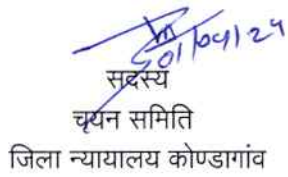 01/04/24
सदस्य
चयन समिति
जिला न्यायालय कोण्डागांव